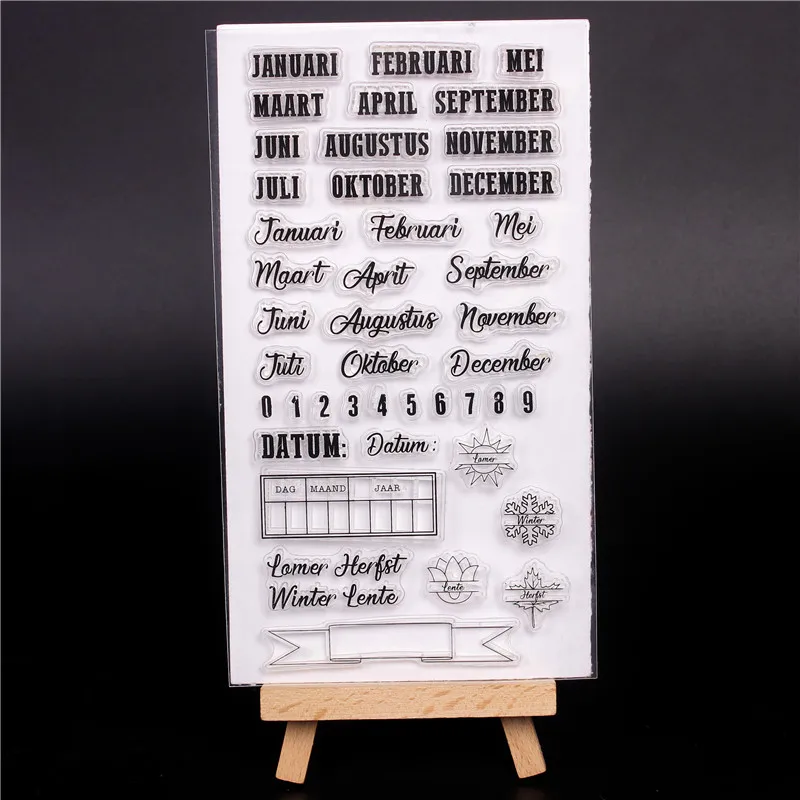 JANUARI FEBRUARI MEI
MAART APRIL SEPTEMBER
JUNI AUGUSTUS NOVEMBER
JULI OKTOBER DECEMBER
Januari Februari Mei
Maart April September
Juni Augustus November
Juli Oktober December
0 1 2 3 4 5 6 7 8 9
DATUM: Datum:
Lomer
DAG MAAND JAAR
Winter
Lomer Herfst
Winter Lente
Lente
Herfst